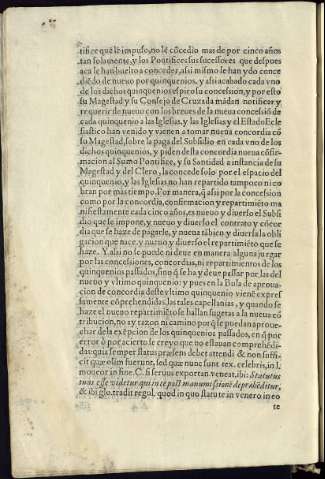 tifice que le impuso, no le cõcedio mas de por cinco años
tan solamente, y los Pontifices sus successores que despues
aca le han buelto a conceder, assi mismo le han ydo conce
diẽdo de nueuo por quinquenios, y assi acabado cada vno
de los dichos quinquenios espiro su concession, y por esto
su Magestad y su Consejo de Cruzada mãdan notificar y
requerir de nueuo con los breues de la nueua concessiõ de
cada quinquenio a las Iglesias, y las Iglesias y el Estado Ecle
siastico han venido y vienen a tomar nueua concordia cõ
su Magestad, sobre la paga del Subsidio en cada vno de los
dichos quinquenios, y piden desta concordia nueua cõfir-
macion al Sumo Pontifice, y su Santidad a instancia de su
Magestad y del Clero, la concede solo por el espacio del
quinquenio, y las Iglesias no han repartido tampoco ni co
bran por mas tiempo. Por manera, q̃ assi por la concession
como por la concordia, confirmacion y repartimiẽto ma
nifiestamente cada cinco años, es nueuo y diuerso el Subsi
dio que se impone, y nueuo y diuerso el contrato y cõcor
dia que se haze de pagarle, y nueua tãbien y diuersa la obli
gacion que nace, y nueuo y diuerso el repartimiẽto que se
haze. Y assi no se puede ni deue en manera alguna juzgar
por las concessiones, concordias, ni repartimientos de los
quinquenios passados, sino q̃ se ha y deue passar por las del
nueuo y vltimo quinquenio: y pues en la Bula de aproua-
cion de concordia deste vltimo quinquenio vienẽ expres
samente cõprehendidas las tales capellanias, y quando se
haze el nueuo repartimiẽto se hallan sugetas a la nueua cõ
tribucion, no ay razon ni camino por q̃ se puedan aproue-
char de la exẽpcion de los quinquenios passados, en q̃ por
error o por cierto se creyo que no estauan comprehẽdi-
das: quia semper status præsens debet attendi & non suffi-
cit quæ olim fuerunt, sed quæ nunc sunt tex. celebris, in l.
in fine. C. si seruus exportan. veneat, ibi: Statutus
& ibi glo. tradit regul. quod in quo statute in venero in eo
te